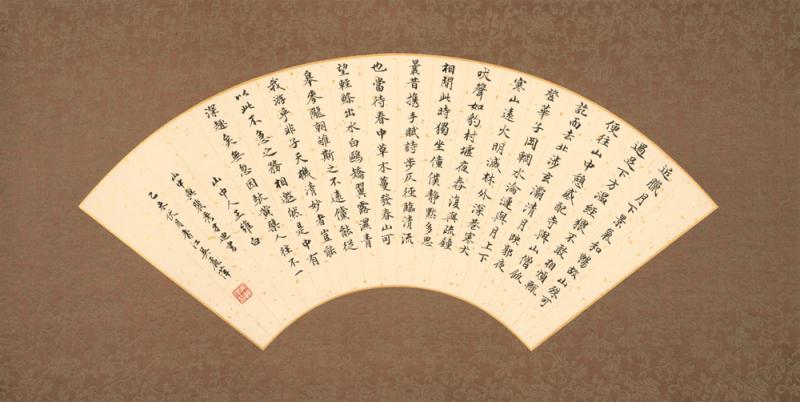 近臘月下景氣和暢故山殊可
過足下方溫經猥不敢相煩輒
便往山中憩感配寺與山僧飯
訖而去北涉玄灞清月映郭夜
登華子岡輞水淪漣與月上下
寒山遠火明滅林外深巷寒犬
吠聲如豹村墟夜舂復與疏鐘
相間此時獨坐僮僕靜默多思
曩昔携手賦詩步仄徑臨清流
也當待春中草木蔓發春山可
望輕鰷出水白鷗矯翼露濕青
皋麥隴朝雊斯之不遠儻能從
我游乎非子天機清妙者豈能
以此不急之務相邀然是中有
深趣矣無忽因馱黃檗人往不一
山中人王維白
山中與裴秀才迪書
己未伏月香江吳